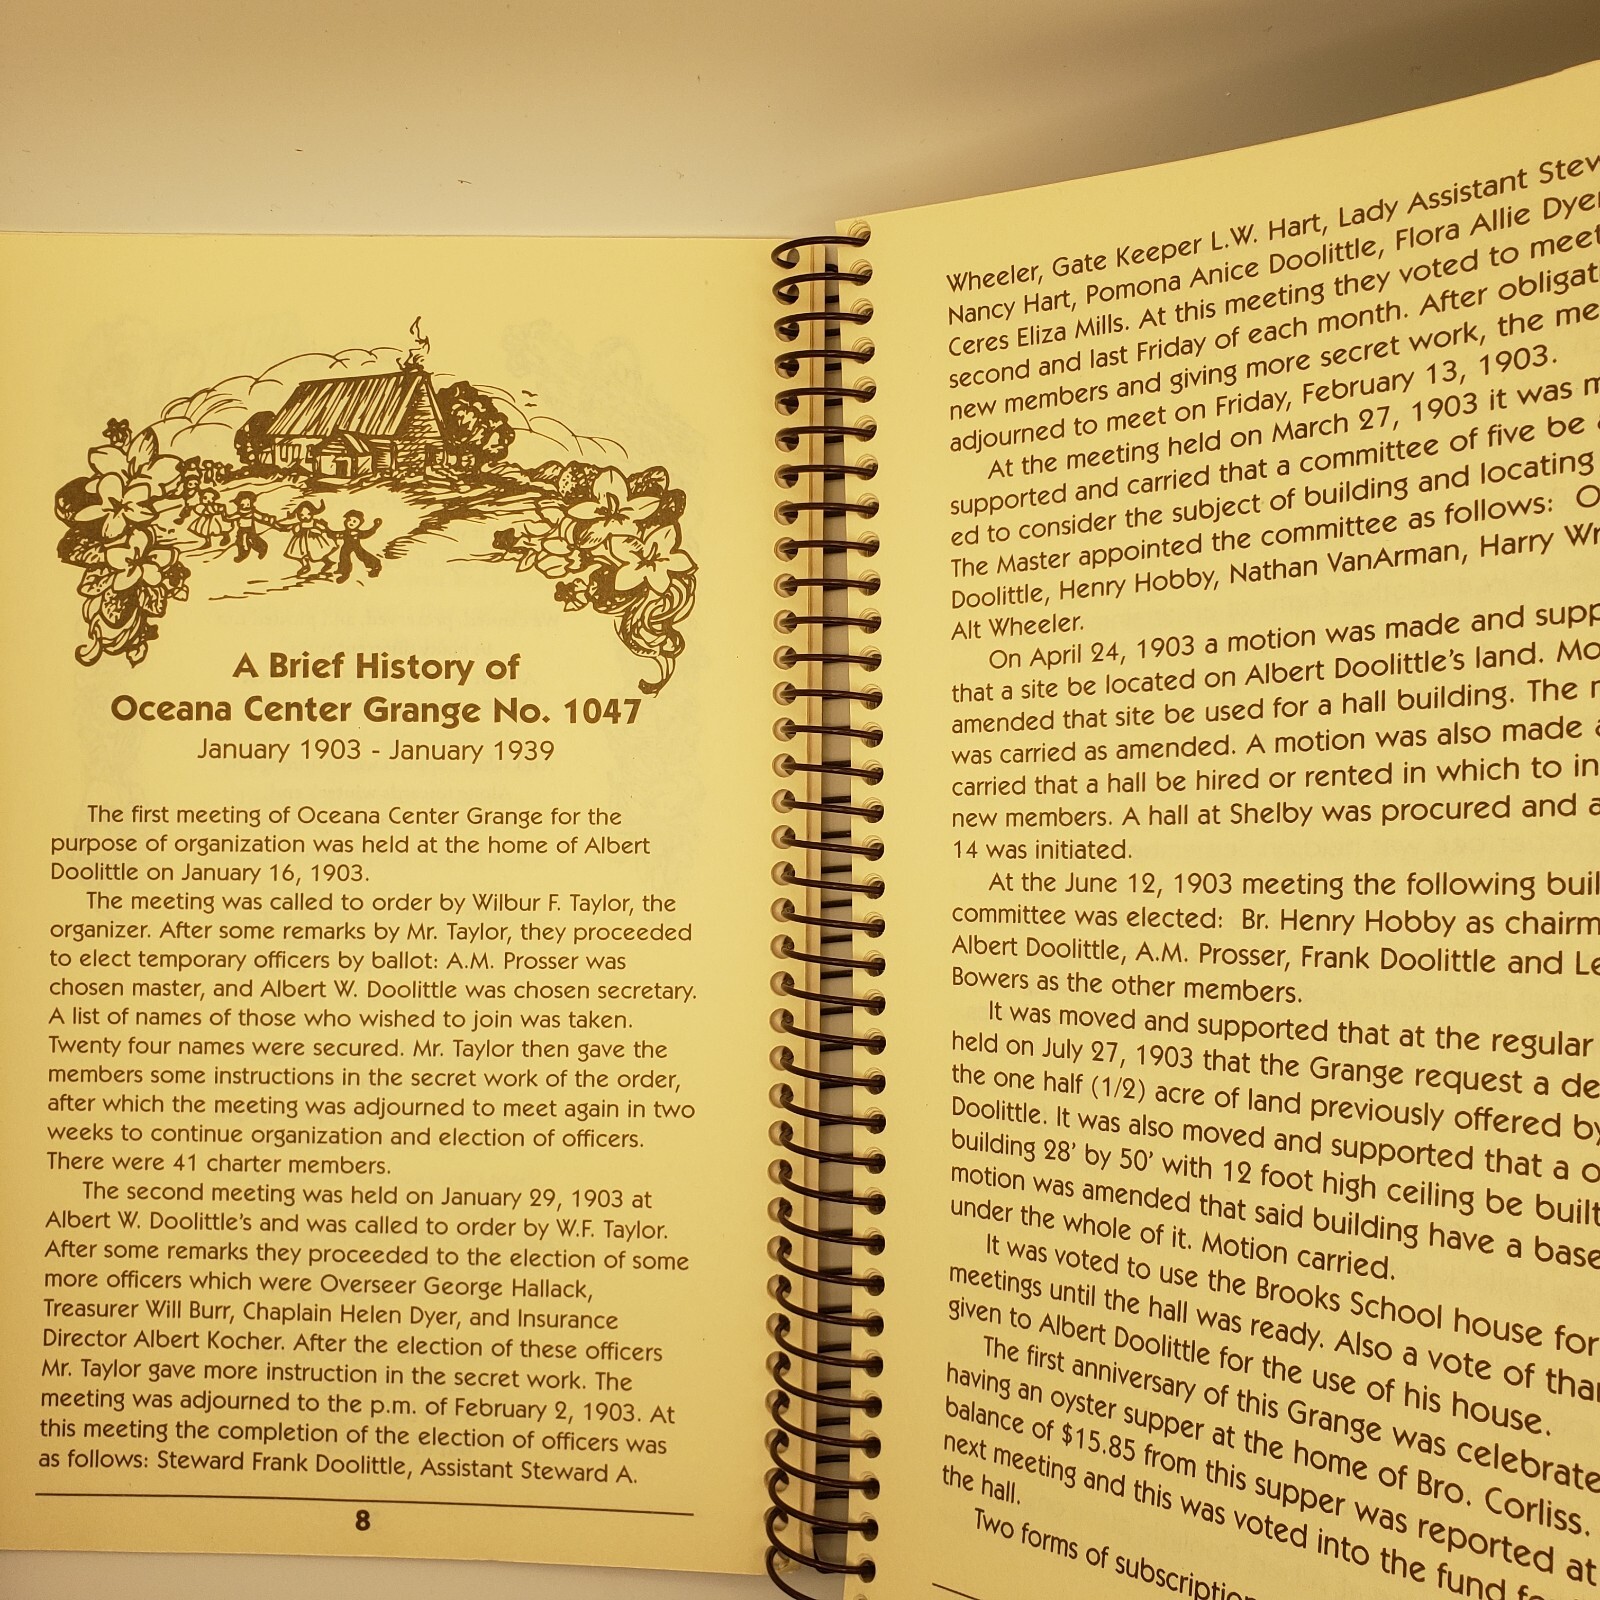 A Brief History of
Oceana Center Grange No. 1047
January 1903 - January 1939
The first meeting of Oceana Center Grange for the
purpose of organization was held at the home of Albert
Doolittle on January 16, 1903.
The meeting was called to order by Wilbur F. Taylor, the
organizer. After some remarks by Mr. Taylor, they proceeded
to elect temporary officers by ballot: A.M. Prosser was
chosen master, and Albert W. Doolittle was chosen secretary.
A list of names of those who wished to join was taken.
Twenty four names were secured. Mr. Taylor then gave the
members some instructions in the secret work of the order,
after which the meeting was adjourned to meet again in two
weeks to continue organization and election of officers.
There were 41 charter members.
The second meeting was held on January 29, 1903 at
Albert W. Doolittle's and was called to order by W.F. Taylor.
After some remarks they proceeded to the election of some
more officers which were Overseer George Hallack,
Treasurer Will Burr, Chaplain Helen Dyer, and Insurance
Director Albert Kocher. After the election of these officers
Mr. Taylor gave more instruction in the secret work. The
meeting was adjourned to the p.m. of February 2, 1903. At
this meeting the completion of the election of officers was
as follows: Steward Frank Doolittle, Assistant Steward A.
8
Wheeler, Gate Keeper L.W. Hart, Lady Assistant
Nancy Hart, Pomona Anice Doolittle, Flora Allie Dyer
Ceres Eliza Mills. At this meeting they voted to meet
second and last Friday of each month. After
new members and giving more secret work, the
adjourned to meet on Friday, February 13, 1903.
At the meeting held on March 27, 1903 it was
supported and carried that a committee of five be
ed to consider the subject of building and locating
The Master appointed the committee as follows:
Doolittle, Henry Hobby, Nathan VanArman, Harry
Alt Wheeler.
On April 24, 1903 a motion was made and
that a site be located on Albert Doolittle's land.
amended that site be used for a hall building. The
was carried as amended. A motion was also made
carried that a hall be hired or rented in which to
new members. A hall at Shelby was procured and
14 was initiated.
At the June 12, 1903 meeting the following
committee was elected: Br. Henry Hobby as
Albert Doolittle, A.M. Prosser, Frank Doolittle and
Bowers as the other members.
It was moved and supported that at the regular
held on July 27, 1903 that the Grange request a
the one half (1/2) acre of land previously offered by
Doolittle. It was also moved and supported that a
building 28' by 50' with 12 foot high ceiling be built
motion was amended that said building have a
under the whole of it. Motion carried.
It was voted to use the Brooks School house for
meetings until the hall was ready. Also a vote of
given to Albert Doolittle for the use of his house.
The first anniversary of this Grange was
having an oyster supper at the home of Bro. Corliss.
balance of $15.85 from this supper was reported at
next meeting and this was voted into the fund
the hall.
Two forms of